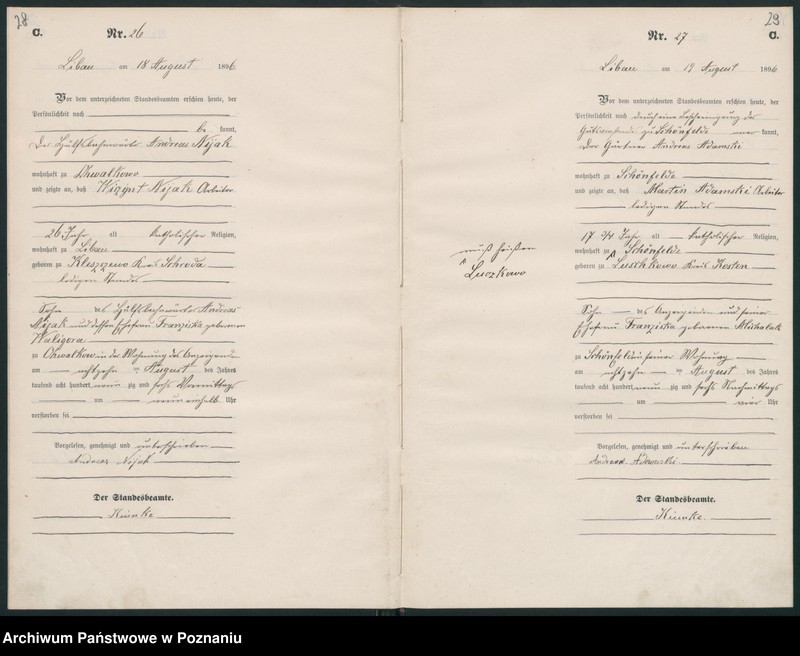 28
C.
Nr. 26
Libau am 18 August 1896
Vor dem unterzeichneten Standesbeamten erschien heute, der
Persönlichkeit nach
be kannt,
Der Hülfsbahnwärter Andreas Nojak
wohnhaft zu Chwalkowo
und zeigte an, daß Nojak Arbeiter
26 Jahr alt katholischer Religion,
wohnhaft zu Libau
geboren zu Kleszczewo Kreis Schroda
ledigen Standes
Sohn des Hülfsbahnwärters Andreas
Nojak und dessen Ehefrau Franziska geborenen
Waligora
zu Chwalkowo in der Wohnung des Anzeigenden
am achtzehn ten August des Jahres
tausend acht hundert neun zig und sechs Vormittags
um neun einhalb Uhr
verstorben sei
Vorgelesen, genehmigt und unterschrieben
Andreas Nojak
Der Standesbeamte.
29
C.
Nr. 27
Libau am 19 August 1896
Vor dem unterzeichneten Standesbeamten erschien heute, der
Persönlichkeit nach durch eine Bescheinigung des
zu Schönfelde kannt,
Der Gärtner Andreas Adamski
wohnhaft zu Schönfelde
und zeigte an, daß Martin Adamski Arbeiter
ledigen Standes
17 3/4 Jahr alt katholischer Religion,
wohnhaft zu Schönfelde
geboren zu Luschkowo Kreis Kosten
muß heißen
Luczkowo
Sohn des Anzeigenden und seiner
Ehefrau Franziska geborenen Michalak
zu Schönfelde in seiner Wohnung
am achtzehn ten August des Jahres
tausend acht hundert neun zig und sechs Nachmittags
um vier Uhr
verstorben sei
Vorgelesen, genehmigt und unterschrieben
Andreas Adamski
Der Standesbeamte.
Archiwum Państwowe w Poznaniu